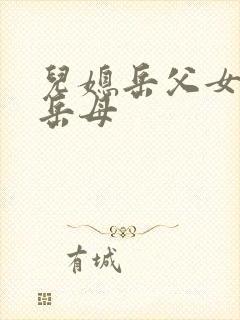 兒媳岳父女
岳母
有城